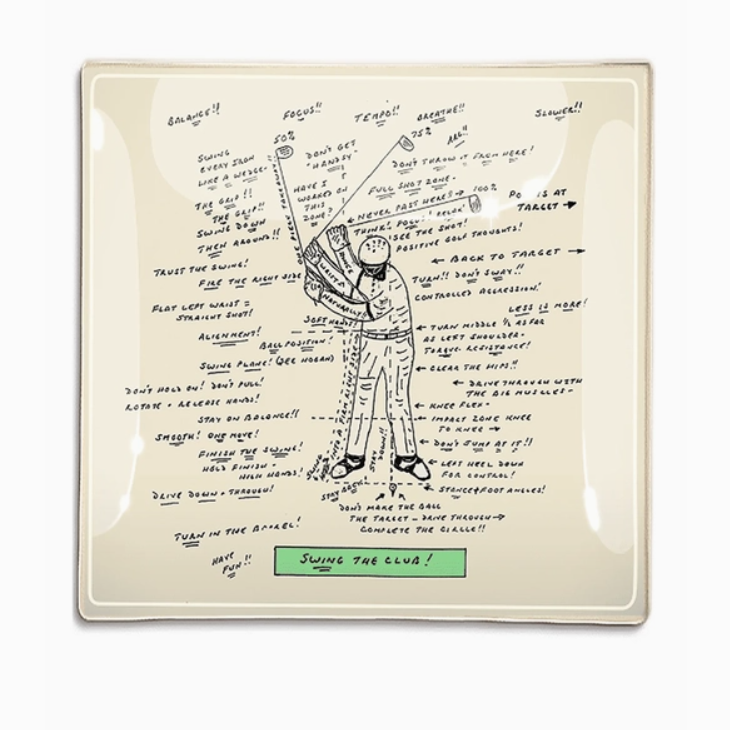 BALANCE!! FOCUS!! TEMPO!! BREATHE!! SLOWER!!
50%
75%
ARG!!
SWING
EVERY IRON
LIKE A WEDGE-
DON'T GET
"HANDSY"
DON'T THROW IT FROM HERE!
THE GRIP!!
THE GRIP!!
HAVE I
WORKED ON
THIS
ZONE?
FULL SHOT ZONE-
100%
NEVER PAST HERE!!
IS AT
TARGET
SWING DOWN
THEN AROUND!!
THINK! FOCUS! RELAX!
SEE THE SHOT!
POSITIVE GOLF THOUGHTS!
BACK TO TARGET
TRUST THE SWING!
FIRE THE RIGHT SIDE
TURN!! DON'T SWAY!!
CONTROLLED AGGRESSION!
NATURALLY!
FLAT LEFT WRIST =
STRAIGHT SHOT!
LESS IS MORE!
SOFT HANDS!
ALIGNMENT!
BALL POSITION!
TURN MIDDLE 1/2 AS FAR
AS LEFT SHOULDER-
TORQUE. RESISTANCE!
SWING PLANE! (SEE HOGAN)
CLEAR THE HIPS!!
DON'T HOLD ON! DON'T PULL!
ROTATE + RELEASE HANDS!
DRIVE THROUGH WITH
THE BIG MUSCLES-
KNEE FLEX-
STAY ON BALANCE!!
IMPACT ZONE KNEE
TO KNEE
SMOOTH! ONE MOVE!
STAY
DOWN!!
DON'T JUMP AT IT!!
FINISH THE SWING!
HOLD FINISH -
HIGH HANDS!
LEFT HEEL DOWN
FOR CONTROL!
DRIVE DOWN + THROUGH!
STAY BACK
STANCE & FOOT ANGLES!
DON'T MAKE THE BALL
THE TARGET - DRIVE THROUGH
COMPLETE THE CIRCLE!!
TURN IN THE BARREL!
HAVE
FUN!!
SWING THE CLUB!